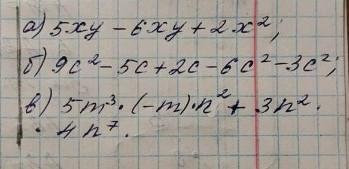 а) 5xy - 6xy + 2x²;
б) 9c² - 5c + 2c - 6c² - 3c²;
в) 5m³ · (-m) · n² + 3n² ·
· 4n⁷.